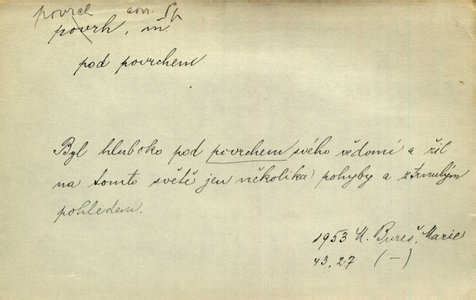 povrch
povrh, m
pod povrchem
Byl hluboko pod povrchem svého vědomí a žil
na tomto světě jen několika pohyby a ztrnulým
pohledem.
1953 M. Bureš, Marie
43, 27 (—)